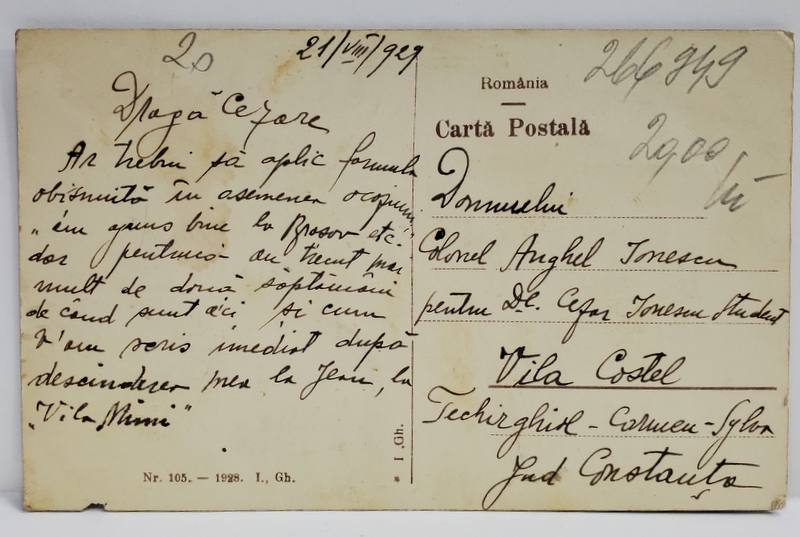 20
21/VIII/929
Dragă Cezare
Ar trebui să aplic formula
obișnuită în asemenea ocaziuni
„am ajuns bine la Brașov etc."
dar pentrucă au trecut mai
mult de două săptămâni
de când sunt aici și cum
V'am scris imediat după
descinderea mea la Jeau, la
„Vila Mimi"
Nr. 105. — 1928. I., Gh.
* I .Gh.
România
Cartă Postală
266949
2900
lei
Domnului
Colonel Anghel Ionescu
pentru Dl. Cezar Ionescu Student
Vila Costel
Techirghiol - Carmen - Sylva
Jud Constanța